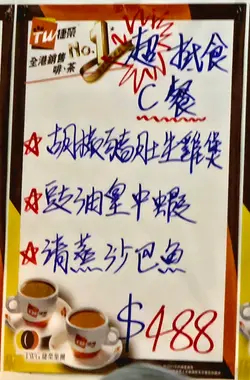 TW 捷榮
全港銷售 No.1
啡.茶
超抵食
C餐
☆胡椒豬肚生雞煲
☆豉油皇中蝦
☆清蒸沙巴魚
$488
TWG 捷榮集團